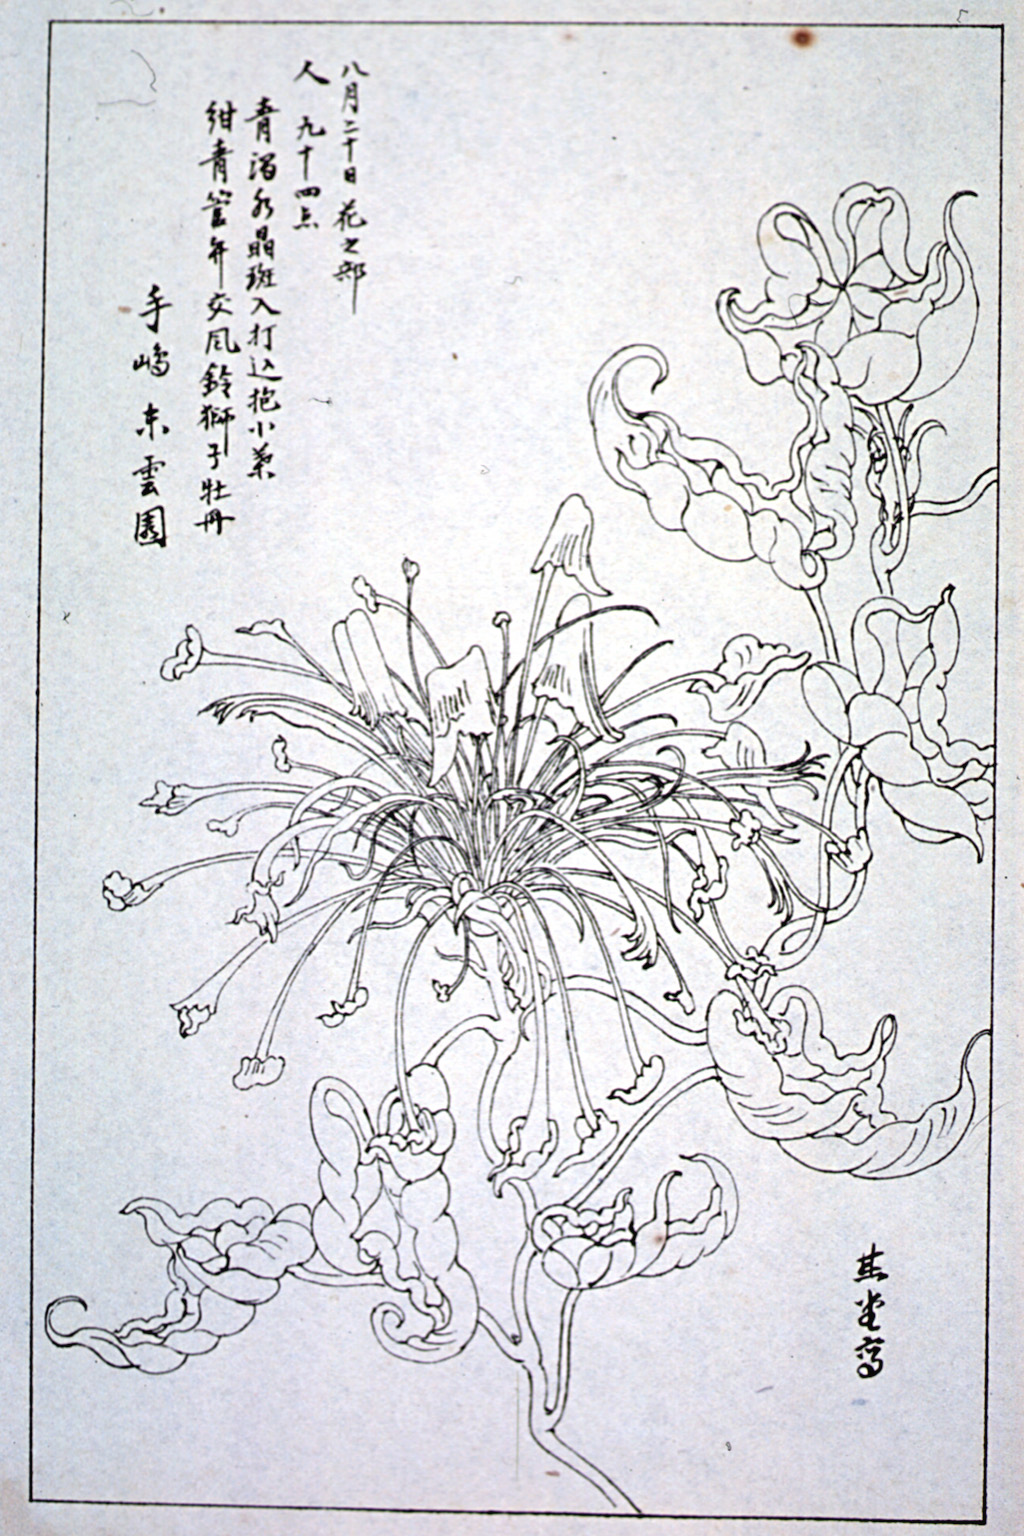 八月二十日花之部
人 九十四点
青濁水晶斑入打込抱小葉
紺青管弁交風鈴獅子牡丹
手嶋東雲園
其堂写